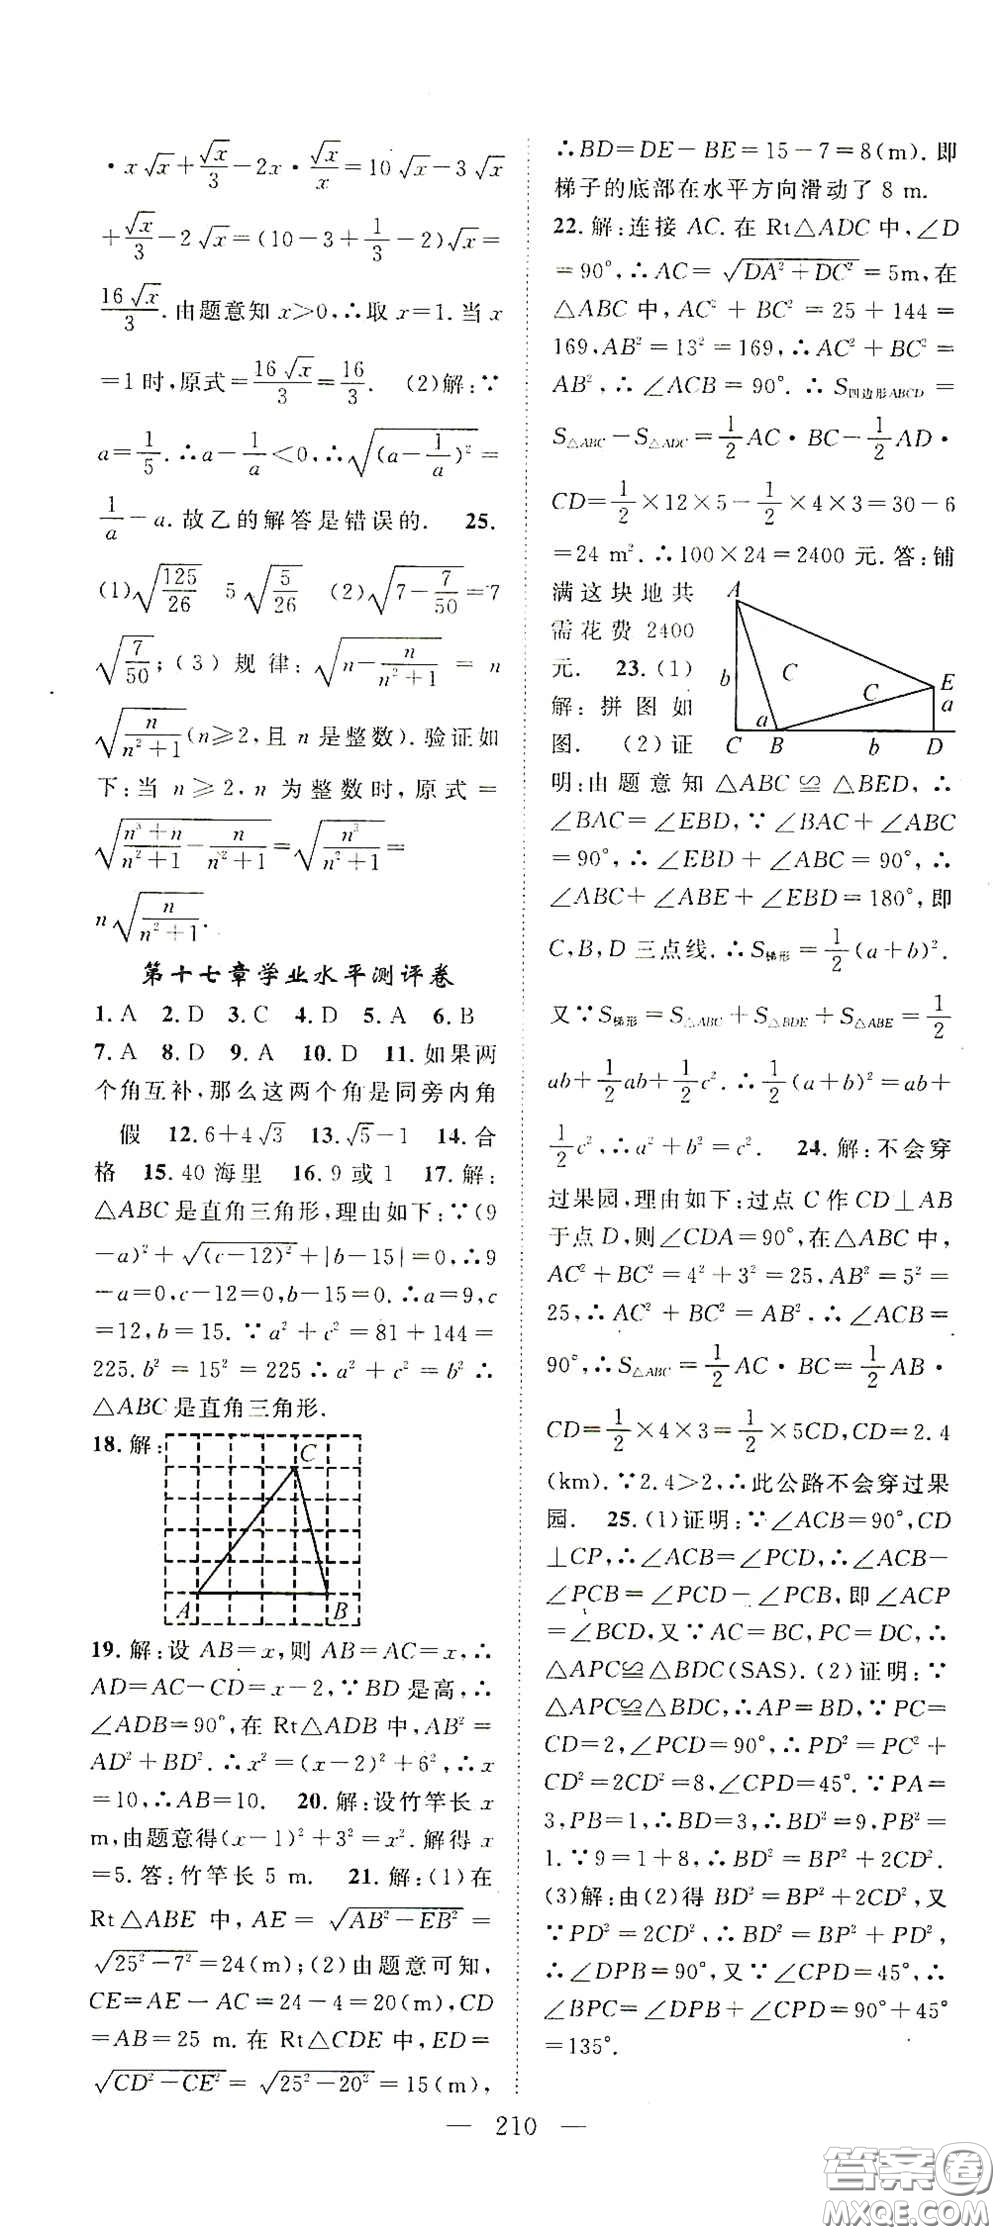 · x√x + √x/3 − 2x · √x/x = 10√x − 3√x
+ √x/3 − 2√x = (10 − 3 + 1/3 − 2)√x =
16√x/3. 由题意知 x>0, ∴取 x=1. 当 x
=1 时, 原式 = 16√x/3 = 16/3. (2)解: ∵
a = 1/5. ∴a − 1/a < 0, ∴√((a − 1/a)²) =
1/a − a. 故乙的解答是错误的. 25.
(1)√(125/26) 5√(5/26) (2)√(7 − 7/50) = 7
√(7/50); (3) 规律: √(n − n/(n²+1)) = n
√(n/(n²+1)) (n≥2, 且 n 是整数). 验证如
下: 当 n≥2, n 为整数时, 原式 =
√((n³+n)/(n²+1) − n/(n²+1)) = √(n³/(n²+1)) =
n√(n/(n²+1)).
第十七章学业水平测评卷
1. A 2. D 3. C 4. D 5. A 6. B
7. A 8. D 9. A 10. D 11. 如果两
个角互补, 那么这两个角是同旁内角
假 12. 6+4√3 13. √5−1 14. 合
格 15. 40 海里 16. 9 或 1 17. 解:
△ABC 是直角三角形, 理由如下: ∵(9
−a)²+√((c−12)²)+|b−15|=0, ∴9
−a=0, c−12=0, b−15=0. ∴a=9, c
=12, b=15. ∵a²+c²=81+144=
225. b²=15²=225 ∴a²+c²=b² ∴
△ABC 是直角三角形.
18. 解:
C
A B
19. 解: 设 AB=x, 则 AB=AC=x, ∴
AD=AC−CD=x−2, ∵BD 是高, ∴
∠ADB=90°, 在 Rt△ADB 中, AB²=
AD²+BD². ∴x²=(x−2)²+6², ∴x
=10, ∴AB=10. 20. 解: 设竹竿长 x
m, 由题意得(x−1)²+3²=x². 解得 x
=5. 答: 竹竿长 5 m. 21. 解: (1)在
Rt△ABE 中, AE = √(AB²−EB²) =
√(25²−7²)=24(m); (2)由题意可知,
CE=AE−AC=24−4=20(m), CD
=AB=25 m. 在 Rt△CDE 中, ED=
√(CD²−CE²)=√(25²−20²)=15(m),
∴BD=DE−BE=15−7=8(m). 即
梯子的底部在水平方向滑动了 8 m.
22. 解: 连接 AC. 在 Rt△ADC 中, ∠D
=90°, ∴AC=√(DA²+DC²)=5m, 在
△ABC 中, AC²+BC²=25+144=
169, AB²=13²=169, ∴AC²+BC²=
AB², ∴∠ACB=90°. ∴S四边形ABCD=
S△ABC−S△ADC=1/2 AC·BC−1/2 AD·
CD=1/2×12×5−1/2×4×3=30−6
=24 m². ∴100×24=2400 元. 答: 铺
满这块地共
需花费 2400
元. 23. (1)
解: 拼图如
图. (2)证
A
b C C E a
a
C B b D
明: 由题意知 △ABC≌△BED, ∴
∠BAC=∠EBD, ∵∠BAC+∠ABC
=90°, ∴∠EBD+∠ABC=90°, ∴
∠ABC+∠ABE+∠EBD=180°, 即
C, B, D 三点线. ∴S梯形=1/2(a+b)².
又∵S梯形=S△ABC+S△BDE+S△ABE=1/2
ab+1/2ab+1/2c². ∴1/2(a+b)²=ab+
1/2c², ∴a²+b²=c². 24. 解: 不会穿
过果园, 理由如下: 过点 C 作 CD⊥AB
于点 D, 则∠CDA=90°, 在△ABC 中,
AC²+BC²=4²+3²=25, AB²=5²=
25, ∴AC²+BC²=AB². ∴∠ACB=
90°, ∴S△ABC=1/2 AC·BC=1/2 AB·
CD=1/2×4×3=1/2×5CD, CD=2.4
(km). ∵2.4>2, ∴此公路不会穿过果
园. 25. (1)证明: ∵∠ACB=90°, CD
⊥CP, ∴∠ACB=∠PCD, ∴∠ACB−
∠PCB=∠PCD−∠PCB, 即∠ACP
=∠BCD, 又∵AC=BC, PC=DC, ∴
△APC≌△BDC(SAS). (2)证明: ∵
△APC≌△BDC, ∴AP=BD, ∵PC=
CD=2, ∠PCD=90°, ∴PD²=PC²+
CD²=2CD²=8, ∠CPD=45°. ∵PA=
3, PB=1, ∴BD=3, ∴BD²=9, PB²=
1. ∵9=1+8, ∴BD²=BP²+2CD².
(3)解: 由(2)得 BD²=BP²+2CD², 又
∵PD²=2CD², ∴BD²=BP²+PD²,
∴∠DPB=90°, 又∵∠CPD=45°, ∴
∠BPC=∠DPB+∠CPD=90°+45°
=135°.
— 210 —
答案圈
MXQE.COM